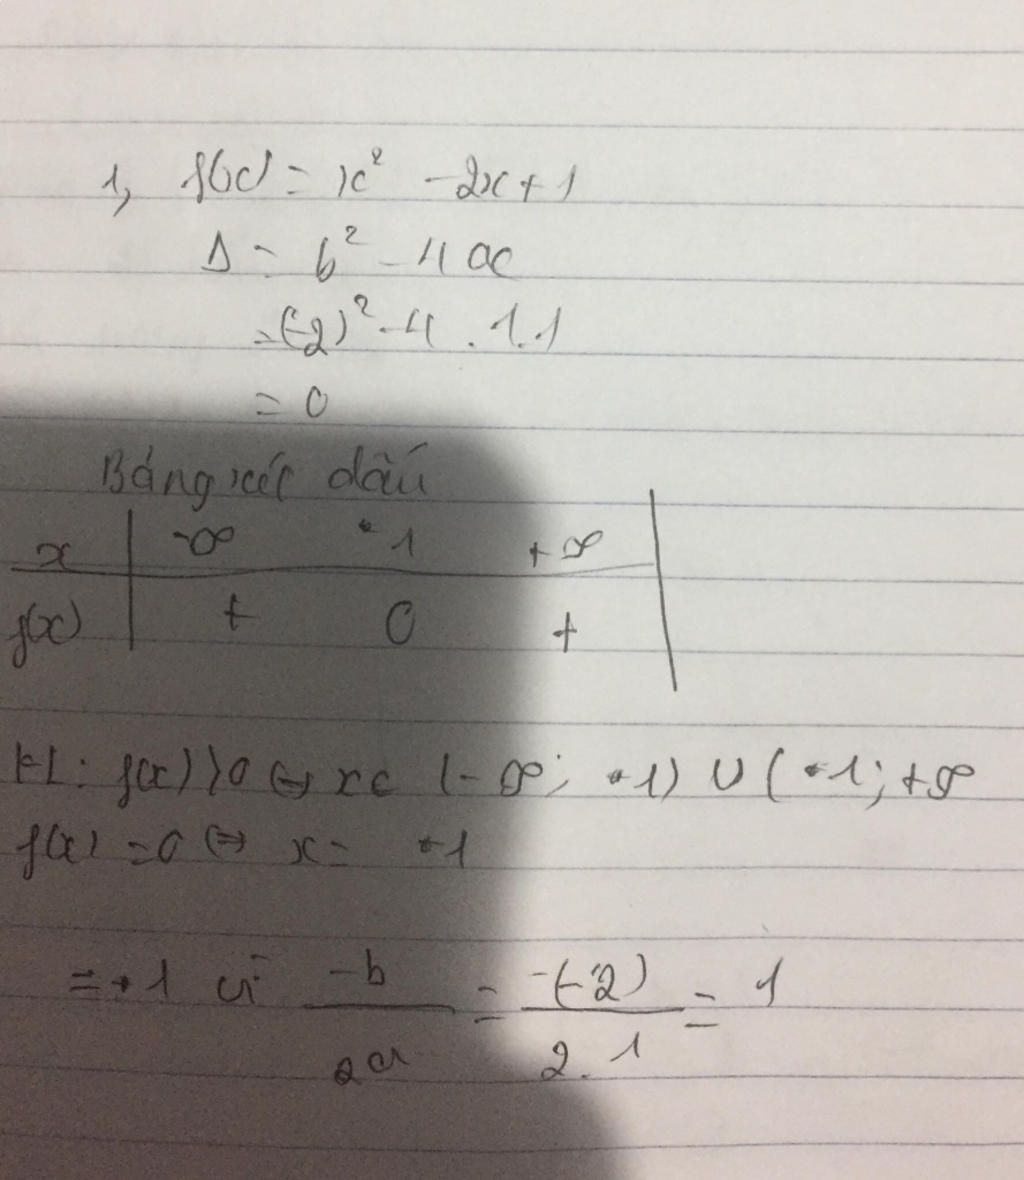 1, f(x) = x² - 2x + 1
Δ = b² - 4ac
= (-2)² - 4 . 1.1
= 0
Bảng xét dấu
x | -∞ 1 +∞ |
f(x) | + 0 + |
KL: f(x) > 0 ⇔ x ∈ (-∞; 1) ∪ (1; +∞
f(x) = 0 ⇔ x = 1
= 1 vì -b/2a = -(-2)/2.1 = 1